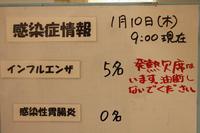 感染症情報
1月10日(木)
9:00現在
インフルエンザ
5名
発熱欠席
います。油断し
ないでください
感染性胃腸炎
0名